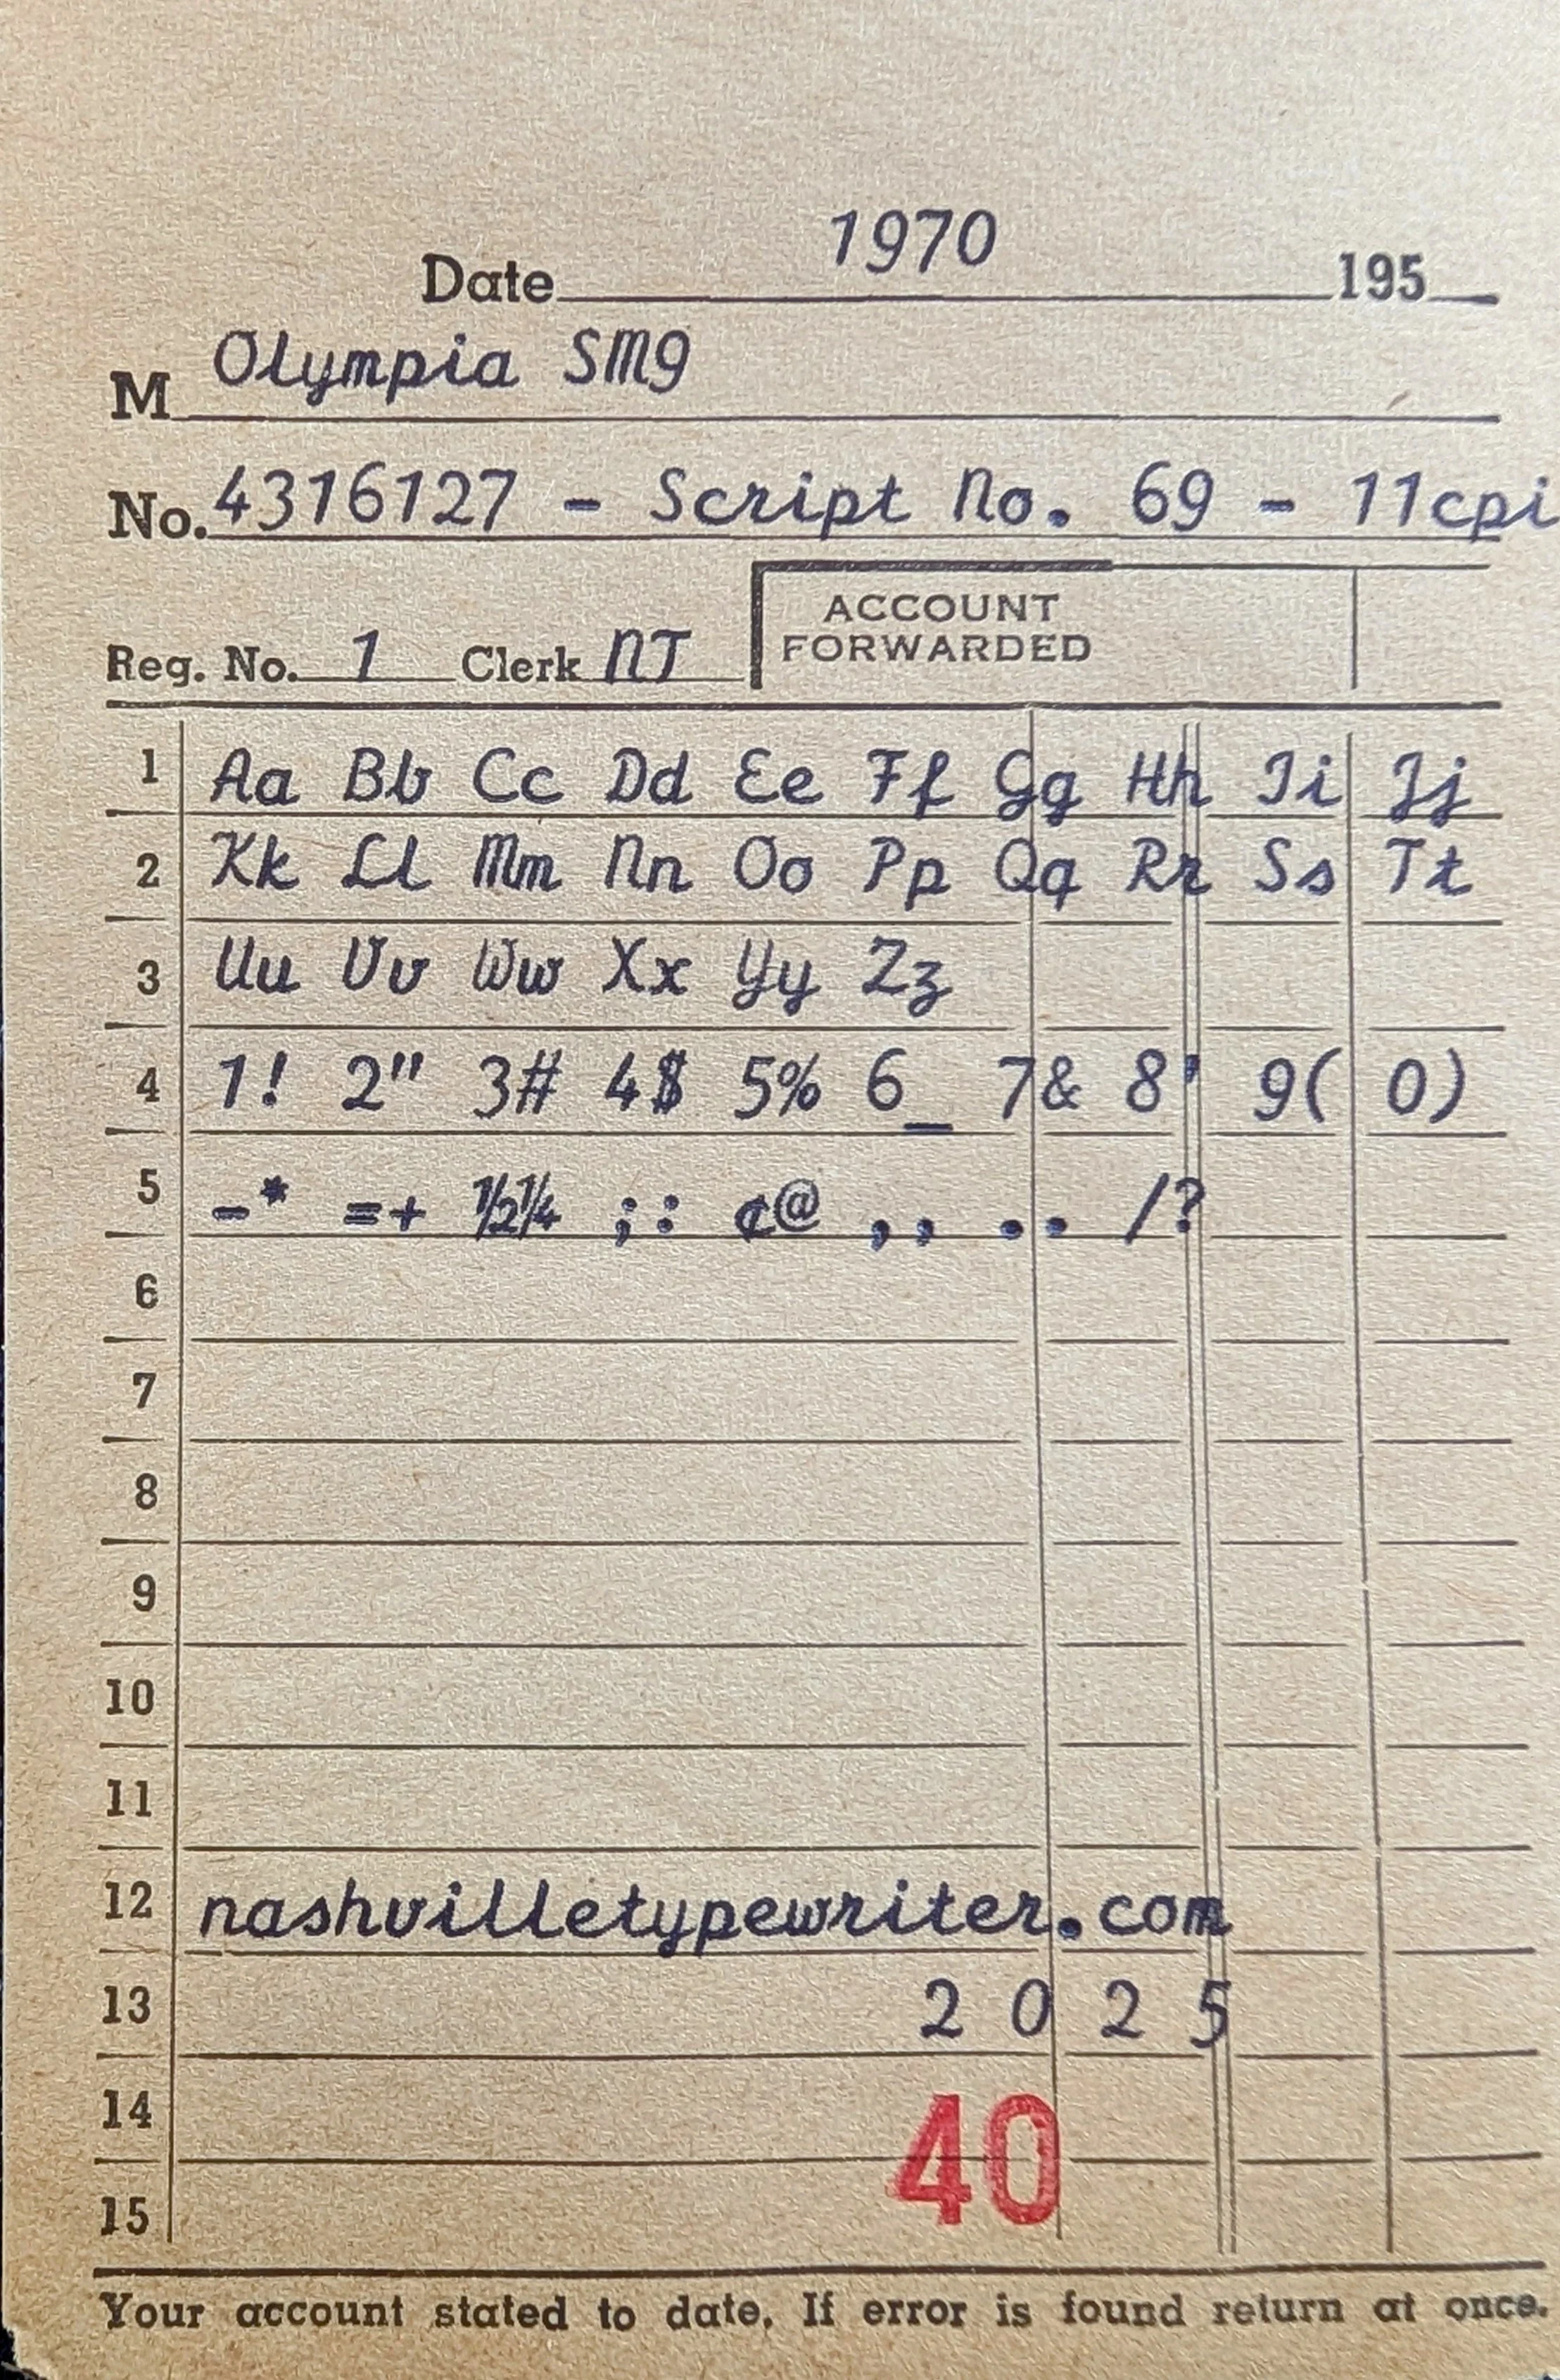 Date 1970 195
M Olympia SM9
No. 4316127 - Script No. 69 - 11cpi
ACCOUNT
FORWARDED
Reg. No. 1 Clerk NT
1 Aa Bb Cc Dd Ee Ff Gg Hh Ii Jj
2 Kk Ll Mm Nn Oo Pp Qq Rr Ss Tt
3 Uu Vv Ww Xx Yy Zz
4 1! 2" 3# 4$ 5% 6_ 7& 8' 9( 0)
5 -* =+ ½¼ ;: ¢@ ,, .. /?
6
7
8
9
10
11
12 nashvilletypewriter.com
13 2 0 2 5
14
40
15
Your account stated to date. If error is found return at once.